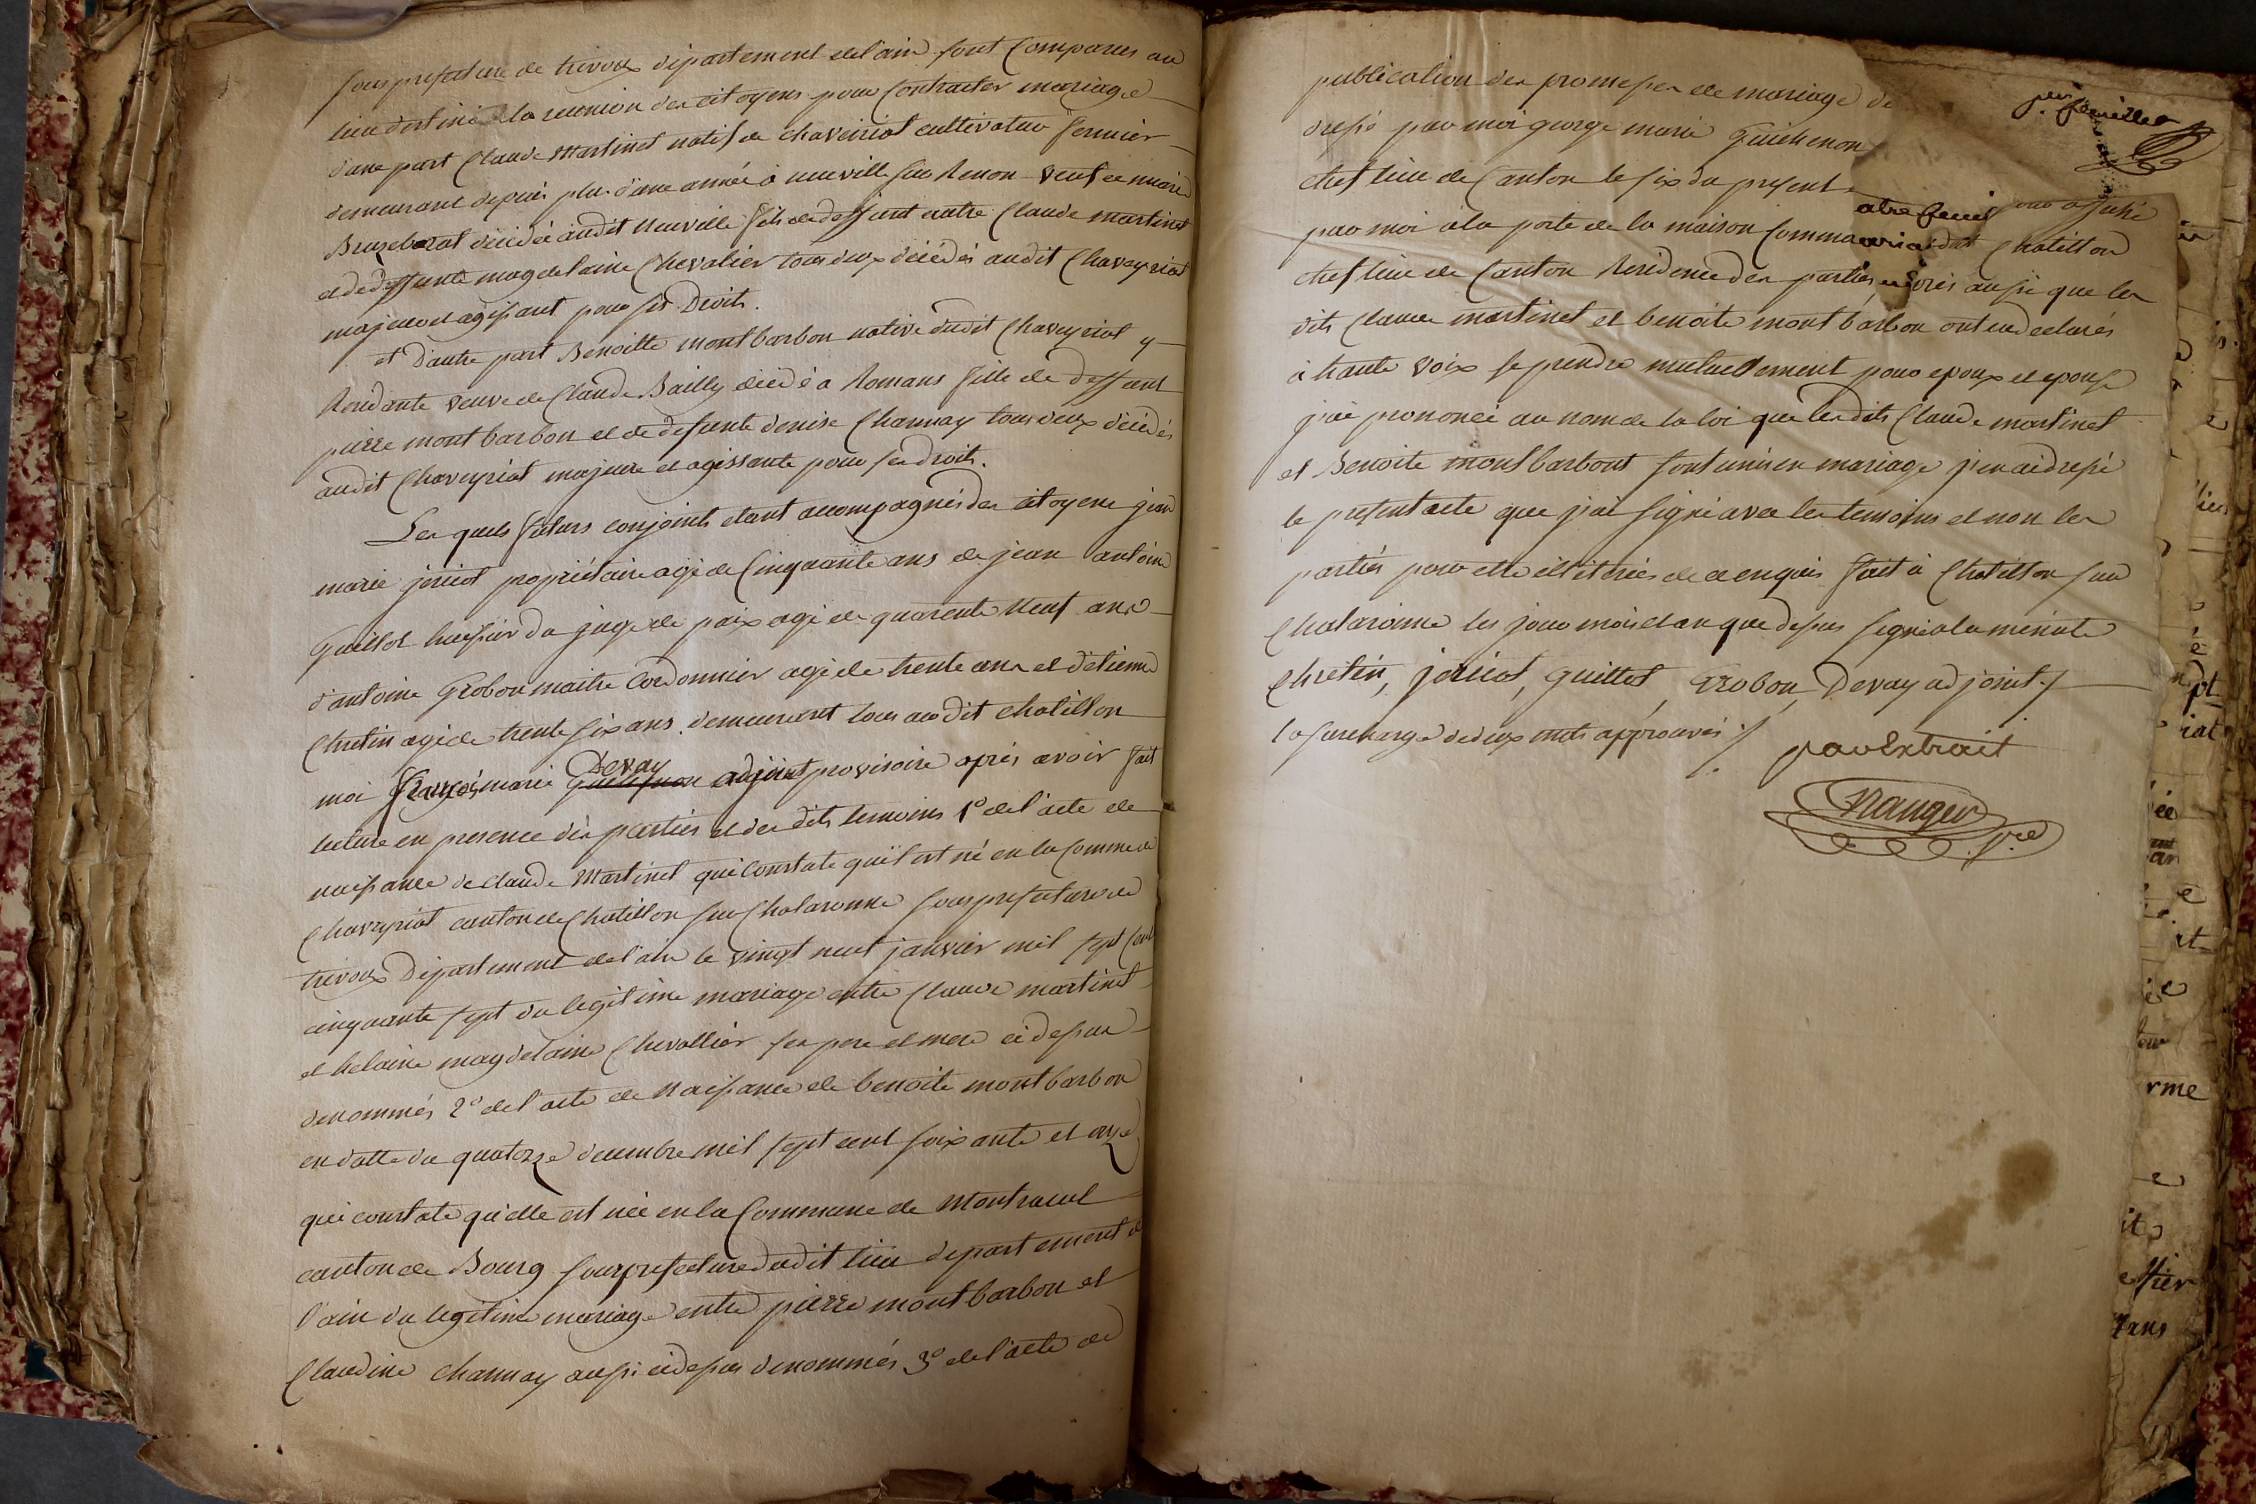 sousprefecture de trevoux département de l'ain sont Comparus au
lieu destiné a la reunion des citoyens pour Contracter mariage
d'une part Claude Martinet natif de Chaveiriat cultivateur fermier
demeurant depuis plus d'une année à neuville sur Renon veuf de marie
décédée audit Neuville fils de deffunt autre Claude martinet
et de deffunte magdelaine Chevalier tous deux décédés audit Chaveyriat
majeur et agissant pour ses Droits.
et d'autre part Benoitte montbarbon native dudit Chaveyriat y
Residante veuve de Claude Bailly décédé a Romans fille de deffunt
pierre montbarbon et de defunte denise Channay tous deux décédés
audit Chaveyriat majeure et agissante pour ses droits.
Les quels futurs conjoints etant accompagnés des citoyens jean
marie joricot propriétaire agé de Cinquante ans de jean antoine
Guillot huissier du juge de paix agé de quarente neuf ans
d'antoine Grobon maitre Cordonnier agé de trente ans et d'etienne
Chretin agé de trente six ans demeurant tous audit chatillon
moi françois marie Devay adjoint provisoire après avoir fait
lecture en presence des parties et des dits temoins 1° de l'acte de
naissance de claude Martinet qui Constate qu'il est né en la Commune de
Chaveyriat canton de Chatillon sur Chalaronne sousprefecture de
trevoux Département de l'ain le vingt neuf janvier mil sept Cent
cinquante sept du legitime mariage entre Claude martinet
et helaine magdelaine Chevallier ses pere et mere ci dessus
denommés 2° de l'acte de Naissance de benoite montbarbon
en datte du quatorze decembre mil sept cent soixante et onze
qui constate qu'elle est née en la Commune de Montracol
canton de Bourg sousprefecture dudit lieu departement de
l'ain du legitime mariage entre pierre montbarbon et
Claudine Channay aussi ci dessus denommés 3° de l'acte de
publication des promesses de mariage de
dressé par moi george marie Guichenon
chef lieu de Canton le six du present
affiché
par moi a la porte de la maison Commune dudit Chatillon
chef lieu de Canton Residence des parties après aussi que les
dits Claude martinet et benoite montbarbon ont eu declarés
à haute voix se prendre mutuellement pour epoux et epouse
j'ai prononcé au nom de la loi que les dits Claude martinet
et Benoite montbarbont sont unis en mariage j'en ai dressé
le present acte que j'ai signé avec les temoins et non les
parties pour etre illiterées de ce enquis fait à Chatillon sur
Chalaronne les jour mois et an que dessus signé a la minute
Chretin, joricot, Guillot, Grobon, Devay adjoint./
la surcharge de deux mots approuvés ./.
par Extrait